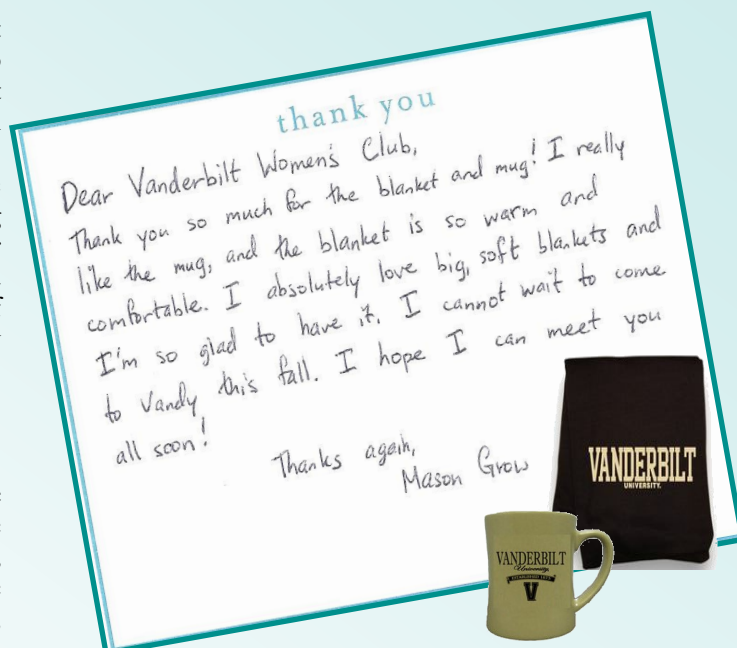 thank you
Dear Vanderbilt Women's Club,
Thank you so much for the blanket and mug! I really
like the mug, and the blanket is so warm and
comfortable. I absolutely love big, soft blankets and
I'm so glad to have it. I cannot wait to come
to Vandy this fall. I hope I can meet you
all soon!
Thanks again,
Mason Grow
VANDERBILT
UNIVERSITY.
VANDERBILT
University
V